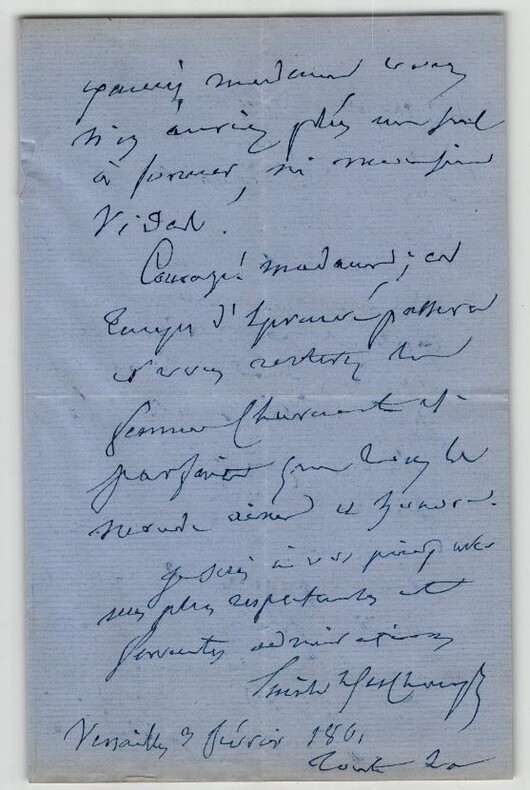 madame vous
n'en auriez plus un seul
à former, ni monsieur
Vidal.
Courage! madame; ce
temps d'épreuve passera
et vous resterez la
femme charmante et
parfaite que tout le
monde aime et honore.
Je suis à vos pieds avec
mes plus respectantes et
ferventes admirations
Émile Deschamps
Versailles 3 février 1861